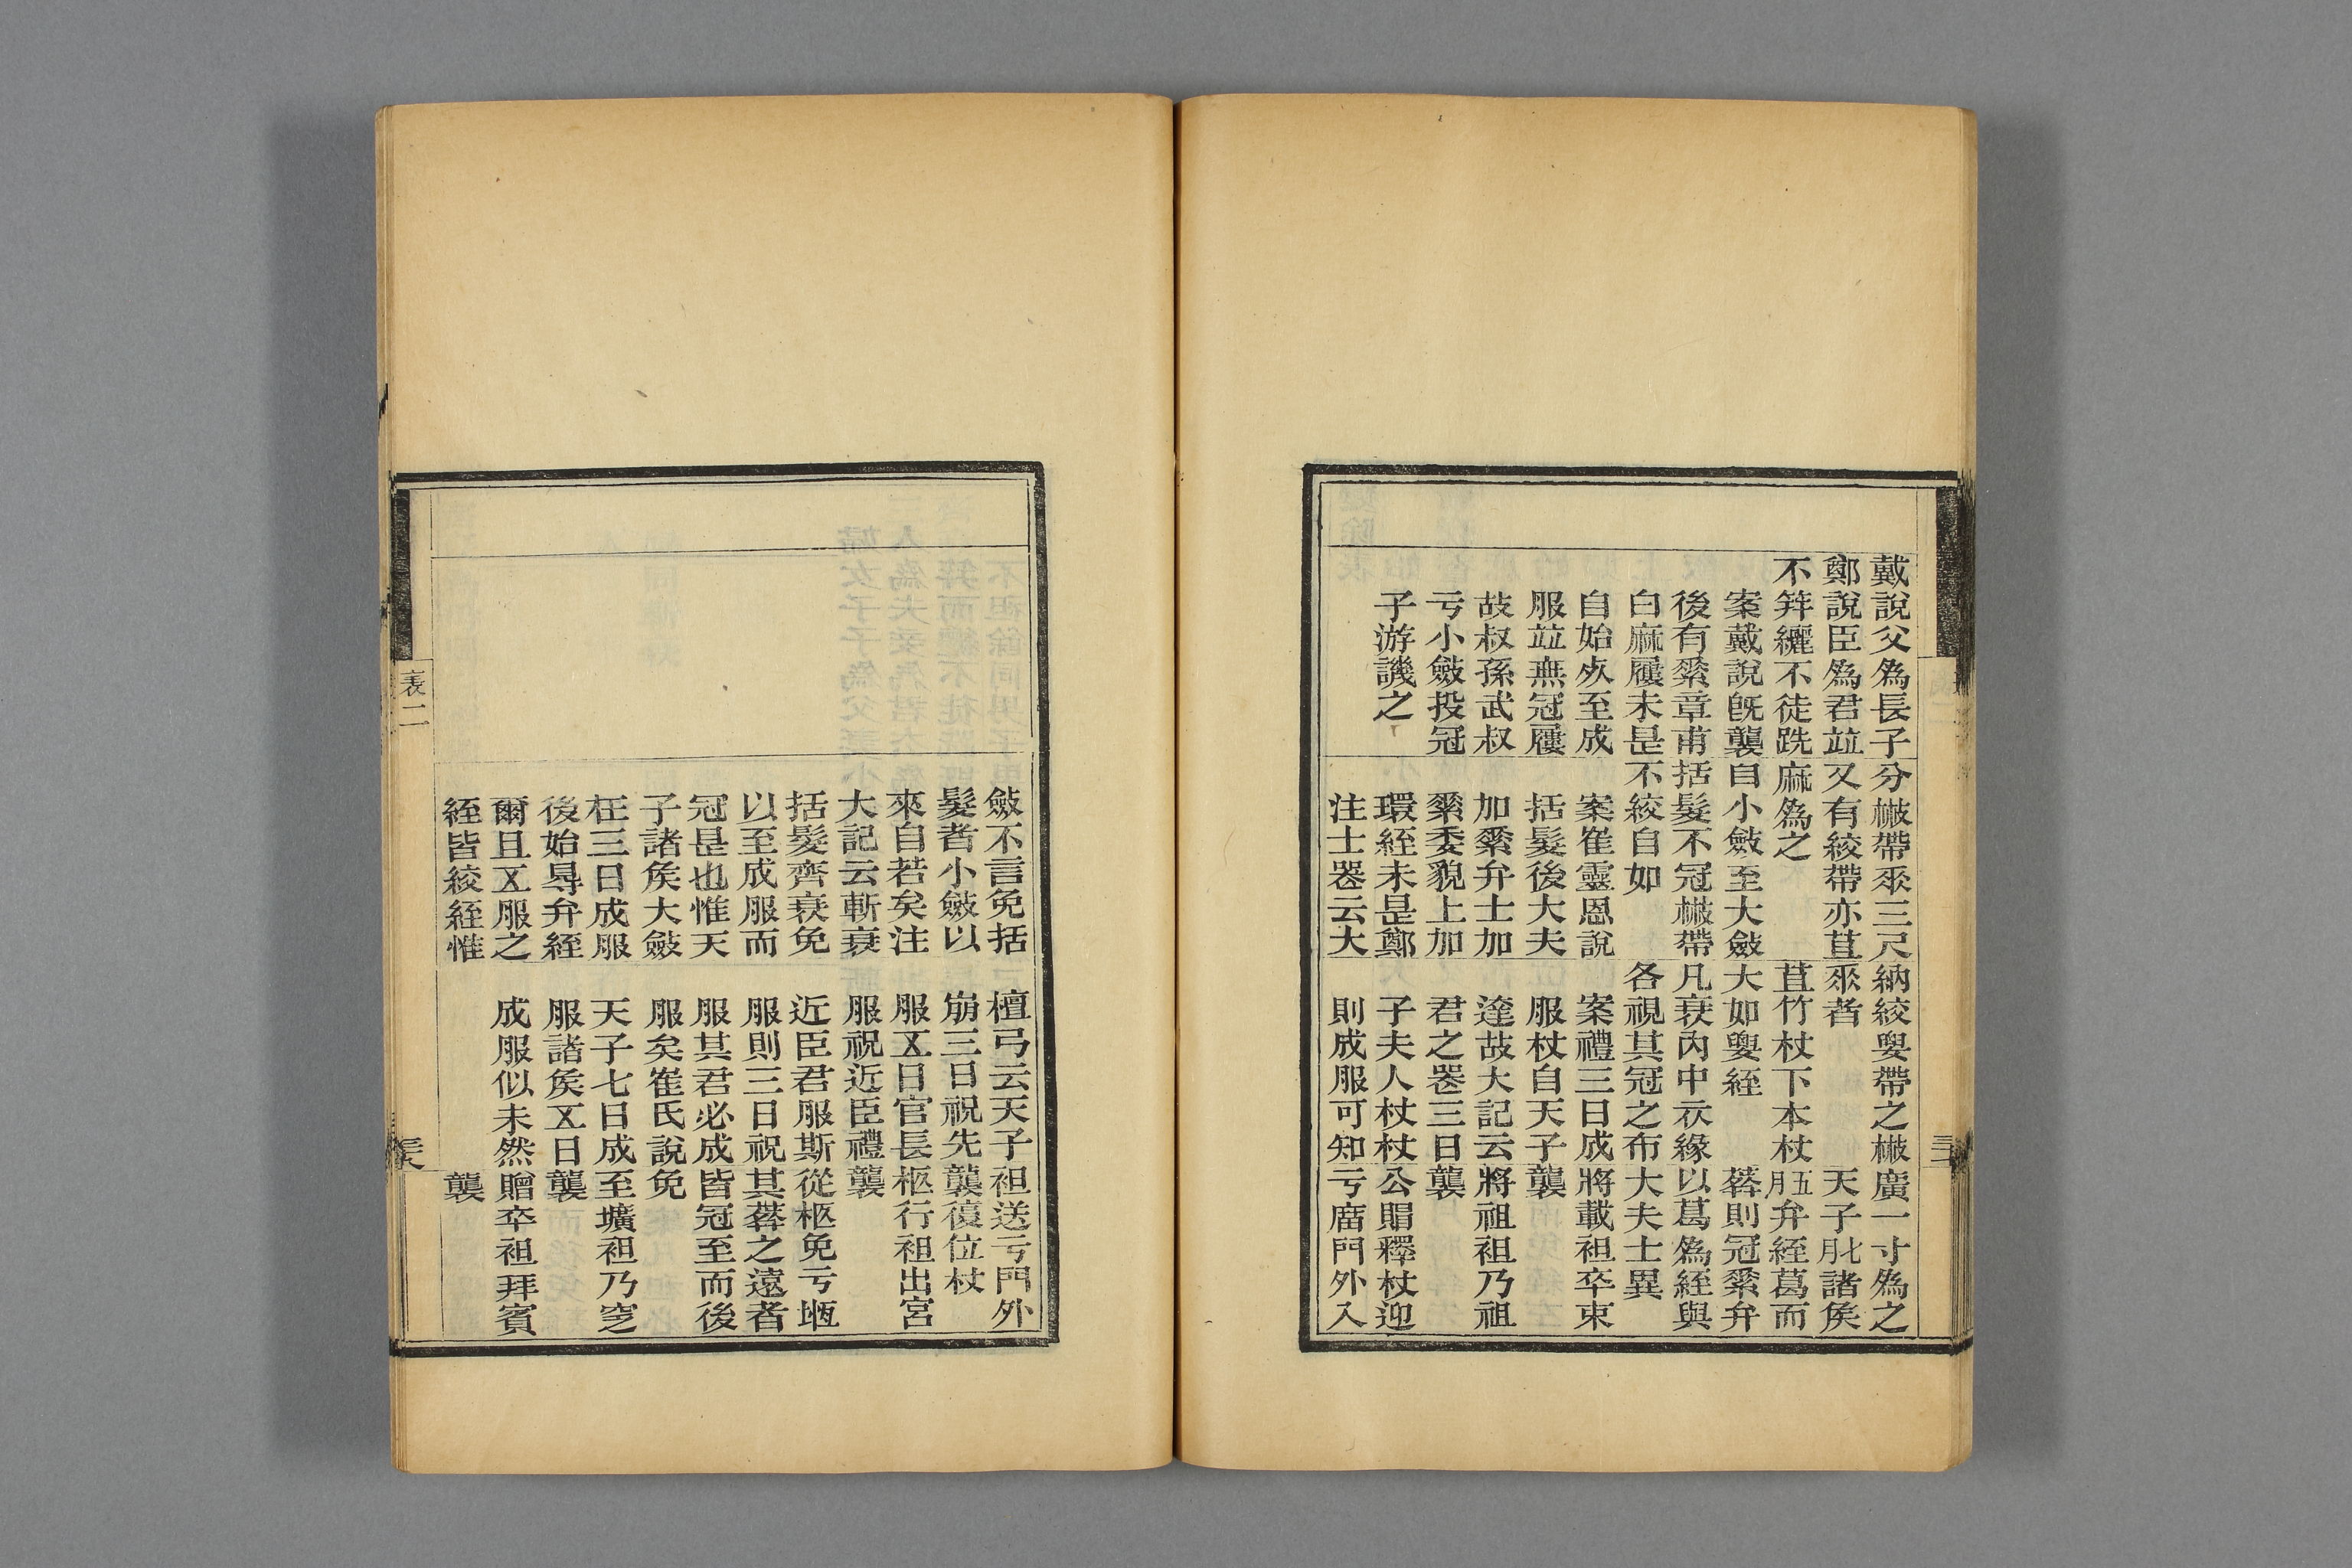 戴說父爲長子
鄭說臣爲君竝
不笄纚不徒跣
案戴說旣襲
後有素章甫
白麻屨未是
自始死至成
服竝無冠屨
故叔孫武叔
亏小斂投冠
子游譏之
分散帶垂三尺
又有絞帶亦苴
麻爲之
自小斂至大斂
括髮不冠散帶
不絞自如
案崔靈恩說
括髮後大夫
加素弁士加
素委貌上加
環絰未是鄭
注士喪云大
納絞要帶之散
垂者
苴竹杖下本杖
大如要絰
凡衰內中衣緣
各視其冠之布
案禮三日成
服杖自天子
達故大記云
君之喪三日
子夫人杖杖
則成服可知
廣一寸爲之
天子七月諸矦
五月弁絰葛而
葬則冠素弁
以葛爲絰與
大夫士異
將載袒卒束
襲
將祖袒乃祖
襲
公賵釋杖迎
亏庿門外入
斂不言免括
髮者小斂以
來自若矣注
大記云斬衰
括髮齊衰免
以至成服而
冠是也惟天
子諸矦大斂
在三日成服
後始尋弁絰
爾且五服之
絰皆絞絰惟
檀弓云天子
崩三日祝先
服五日官長
服祝近臣禮
近臣君服斯
服則三日祝
服其君必成
服矣崔氏說
天子七日成
服諸矦五日
成服似未然
袒送亏門外
襲復位杖
柩行袒出宮
襲
從柩免亏堩
其葬之遠者
皆冠至而後
免
至壙袒乃窆
襲
贈卒袒拜賓
襲
表二